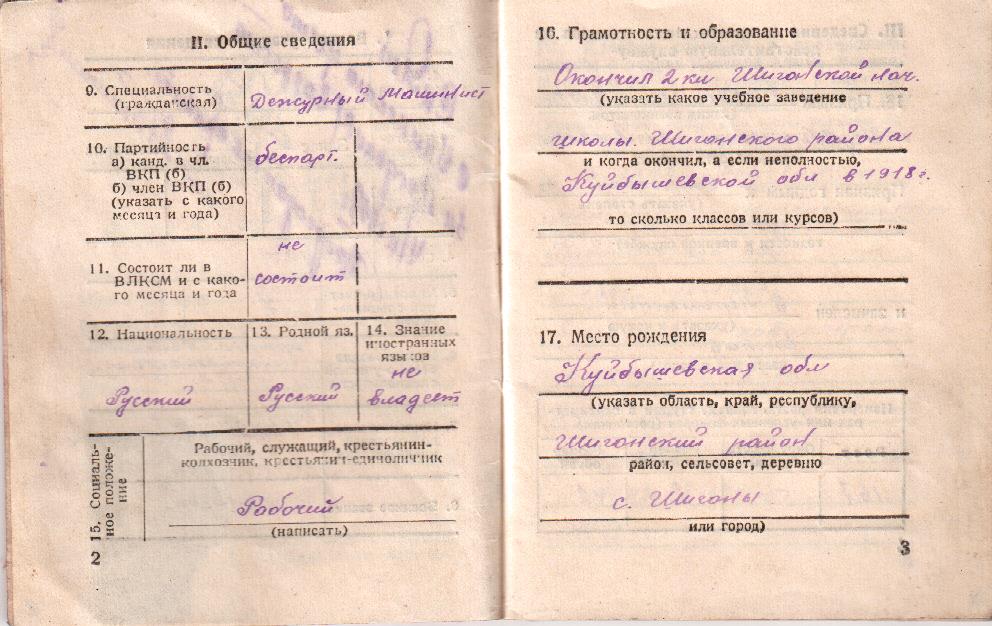 II. Общие сведения
9. Специальность
(гражданская)
Дежурный Машинист
10. Партийность
а) канд. в чл.
ВКП (б)
б) член ВКП (б)
(указать с какого
месяца и года)
беспарт.
11. Состоит ли в
ВЛКСМ и с како-
го месяца и года
не
состоит
12. Национальность
Русский
13. Родной яз.
Русский
14. Знание
иностранных
языков
не
владеет
15. Социаль-
ное положе-
ние
Рабочий, служащий, крестьянин-
колхозник, крестьянин-единоличник
Рабочий
(написать)
2
16. Грамотность и образование
Окончил 2 кл Шигонской нач.
(указать какое учебное заведение
школы. Шигонского района
и когда окончил, а если неполностью,
Куйбышевской обл в 1918 г.
то сколько классов или курсов)
17. Место рождения
Куйбышевская обл
(указать область, край, республику,
Шигонский район
район, сельсовет, деревню
с. Шигоны
или город)
3